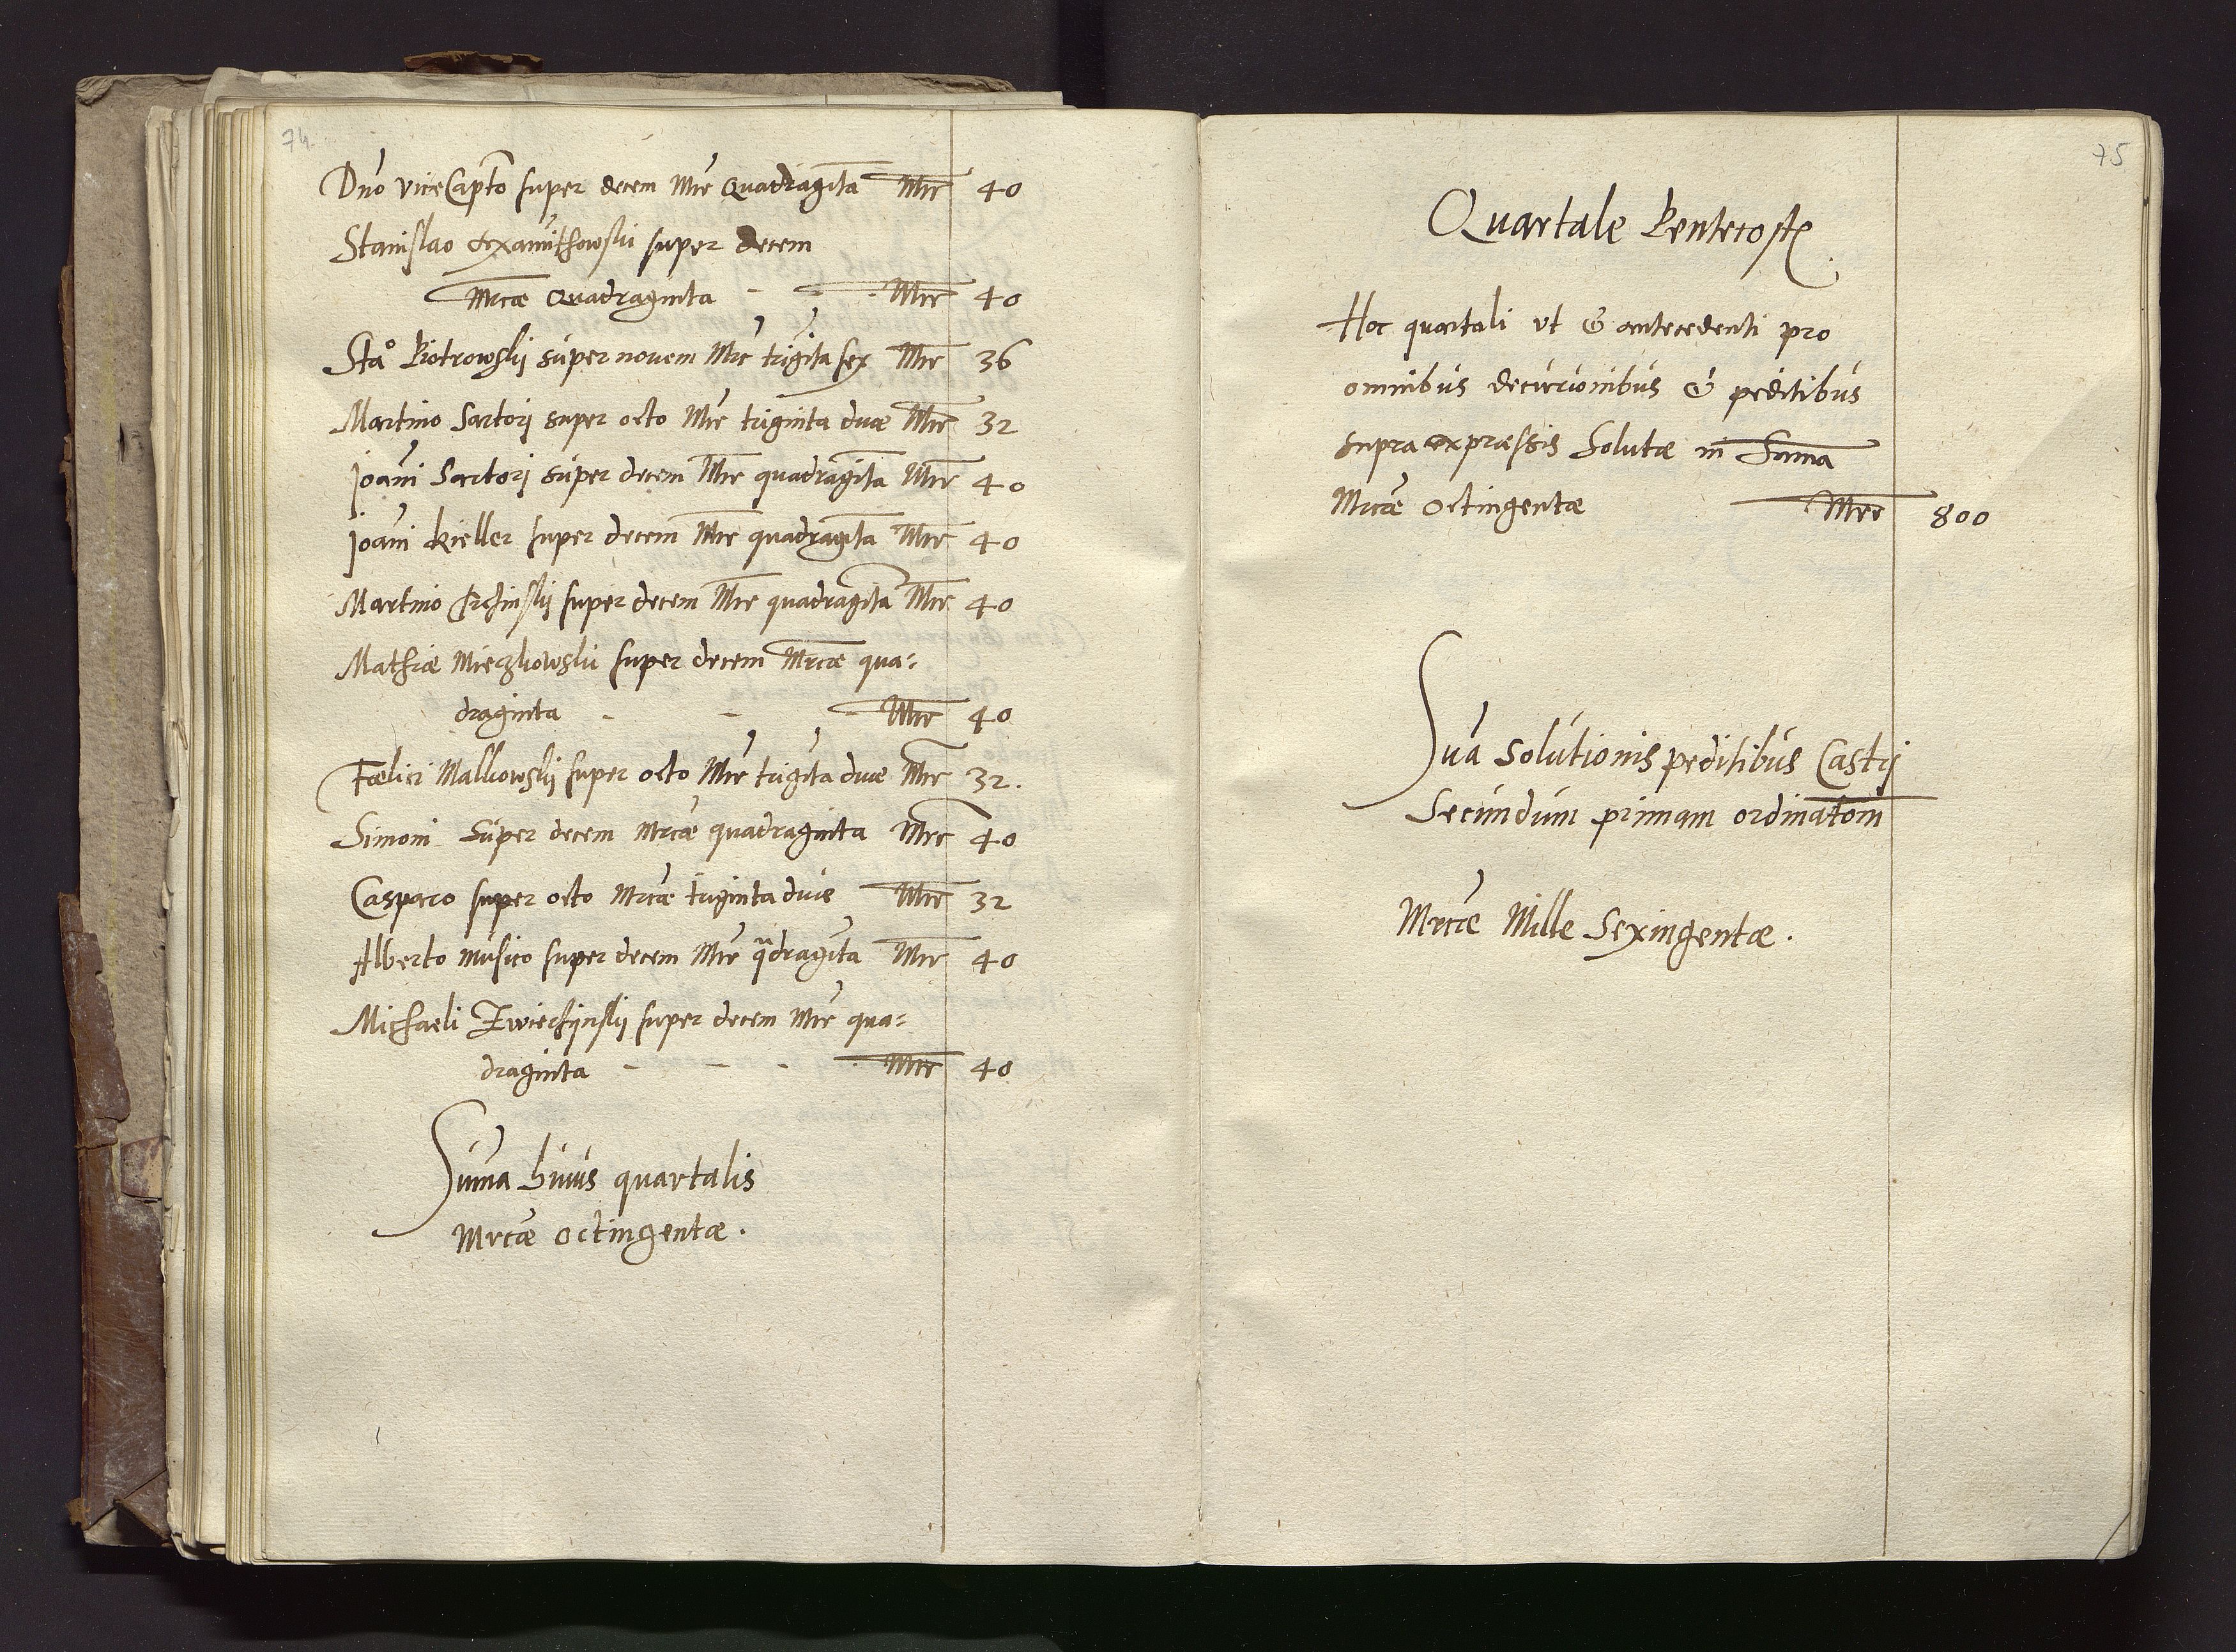 74.
Dno viceCapto super decem Mrc Quadragita Mrc 40
Stanislao super decem
Mrcae Quadraginta - - Mrc 40
Sta° Piotrowskij super novem Mrc trigita sex Mrc 36
Martino Sartorj super octo Mrc triginta duae Mrc 32
Joani Sartorj super decem Mrc quadragita Mrc 40
Joani kieller super decem Mrc quadragita Mrc 40
Martino super decem Mrc quadragita Mrc 40
Mathiae Mieczkowskii super decem Mrcae qua-
draginta - - - Mrc 40
Faelici Malkowskij super octo Mrc trigita duae Mrc 32.
Simoni super decem Mrcae quadraginta Mrc 40
Casparo super octo Mrcae triginta duae Mrc 32
Alberto musico super decem Mrc qdragita Mrc 40
Michaeli Zwiechijnskij super decem Mrc qua-
draginta - - - Mrc 40
Suma huius quartalis
Mrcae octingentae.
75
Quartale Pentecost
Hoc quartali vt & antecedenti pro
omnibus decurionibus & peditibus
supra expraessis Solutae in Suma
Mrcae octingentae Mrc 800
Sua Solutionis peditibus Castrj
Secundum primam ordinatom
Mrcae Mille Sexingentae.